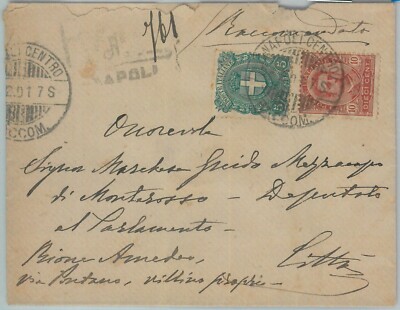 761
Raccomandata
NAPOLI CENTRO
2.01.7S
RACCOM.
NAPOLI
NAPOLI CENTRO
RACCOM.
10
DIECI CENT
Onorevole
Signor Marchese Guido Mezzacapo
di Monterosso - Deputato
al Parlamento -
Rione Amedeo,
Città
villino proprio -